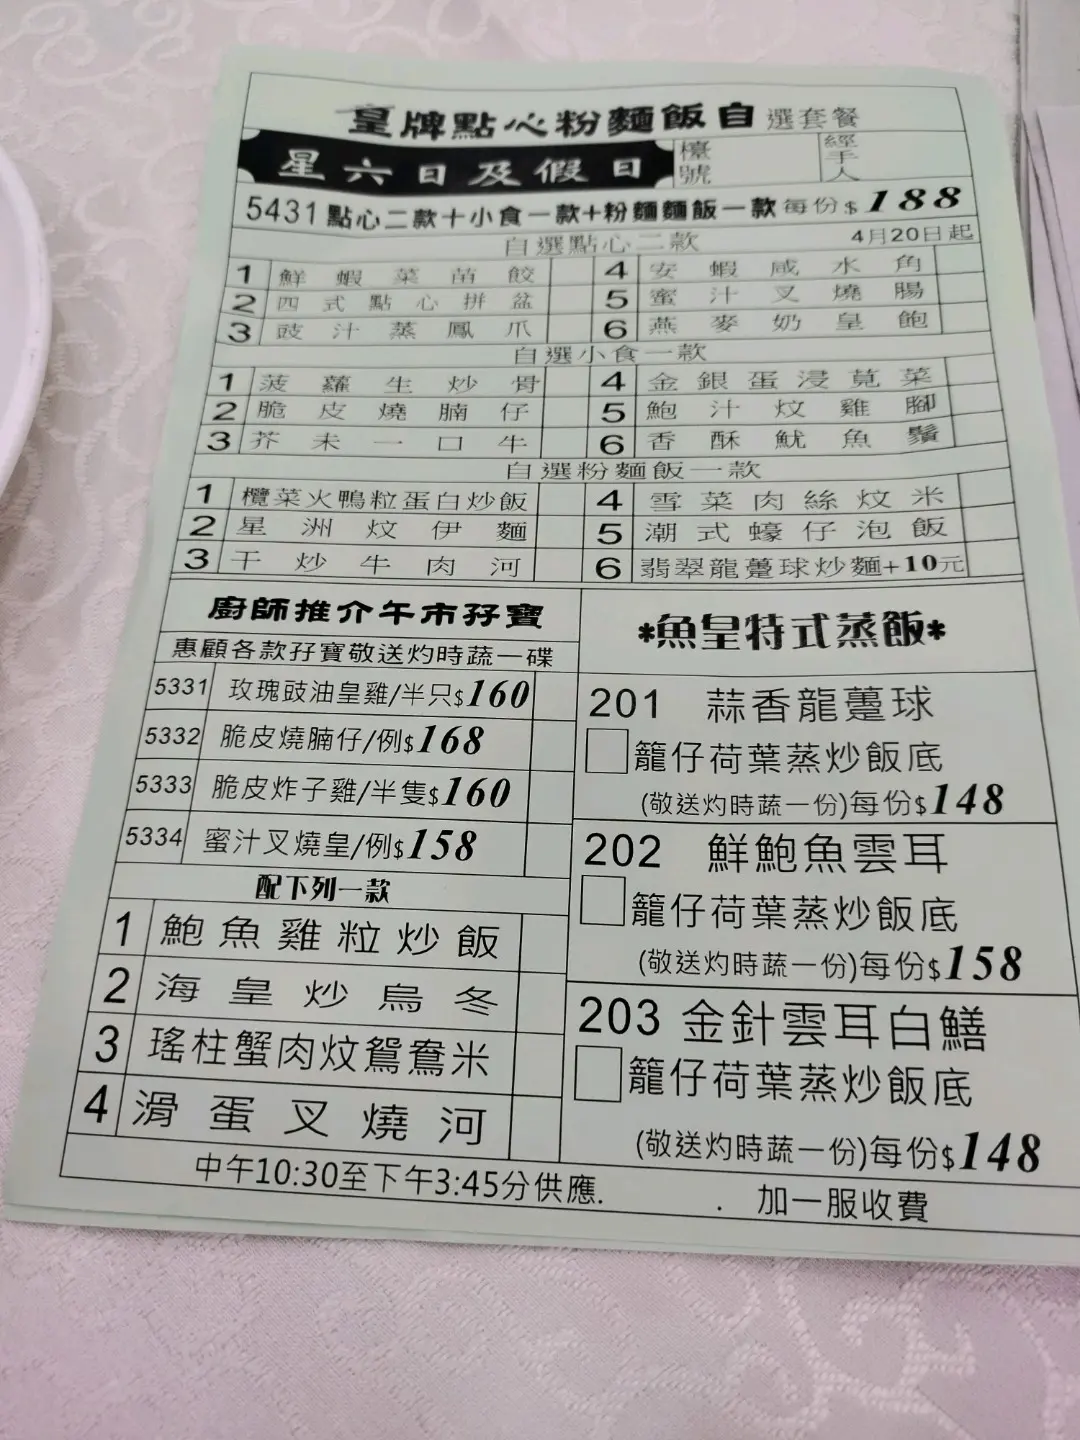 皇牌點心粉麵飯自選套餐
星六日及假日
檯號
經手人
5431 點心二款十小食一款+粉麵麵飯一款每份$188
自選點心二款 4月20日起
1 鮮蝦菜苗餃
4 安蝦咸水角
2 四式點心拼盆
5 蜜汁叉燒腸
3 豉汁蒸鳳爪
6 燕麥奶皇飽
自選小食一款
1 菠蘿生炒骨
4 金銀蛋浸莧菜
2 脆皮燒腩仔
5 鮑汁炆雞腳
3 芥末一口牛
6 香酥魷魚鬚
自選粉麵飯一款
1 欖菜火鴨粒蛋白炒飯
4 雪菜肉絲炆米
2 星洲炆伊麵
5 潮式蠔仔泡飯
3 干炒牛肉河
6 翡翠龍躉球炒麵+10元
廚師推介午市孖寶
惠顧各款孖寶敬送灼時蔬一碟
5331 玫瑰豉油皇雞/半只$160
5332 脆皮燒腩仔/例$168
5333 脆皮炸子雞/半隻$160
5334 蜜汁叉燒皇/例$158
配下列一款
1 鮑魚雞粒炒飯
2 海皇炒烏冬
3 瑤柱蟹肉炆鴛鴦米
4 滑蛋叉燒河
*魚皇特式蒸飯*
201 蒜香龍躉球
籠仔荷葉蒸炒飯底
(敬送灼時蔬一份)每份$148
202 鮮鮑魚雲耳
籠仔荷葉蒸炒飯底
(敬送灼時蔬一份)每份$158
203 金針雲耳白鱔
籠仔荷葉蒸炒飯底
(敬送灼時蔬一份)每份$148
中午10:30至下午3:45分供應. . 加一服收費